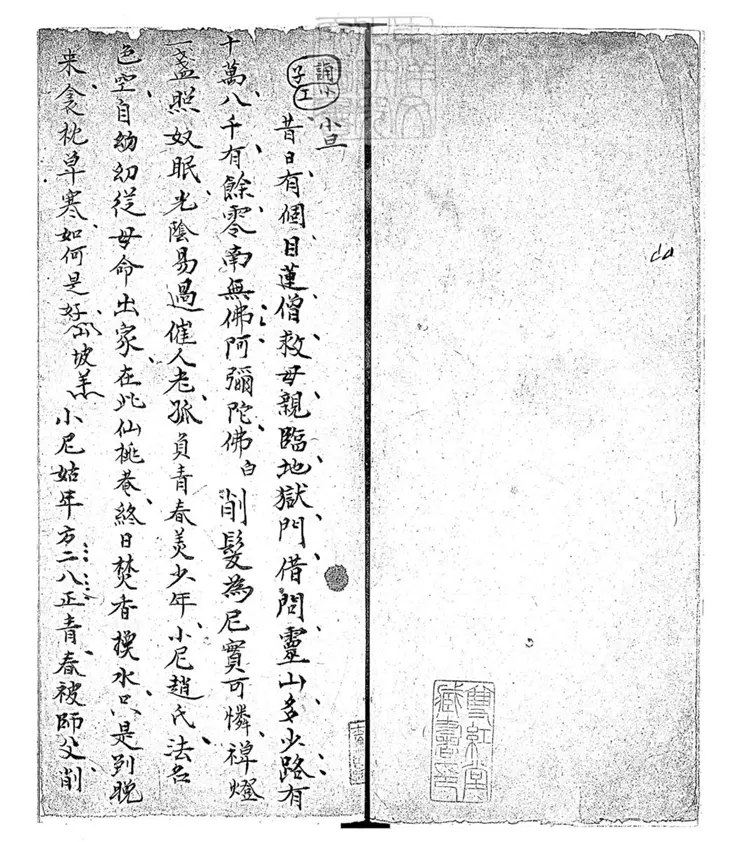 雙紅堂
藏書印
小旦
昔日有個目蓮僧救母親臨地獄門借問靈山多少路有
十萬八千有餘零南無佛阿彌陀佛白削髮為尼實可憐禅燈
一盞照奴眠光陰易過催人老孤負青春美少年小尼趙氏法名
色空自幼從母命出家在此仙桃菴終日焚香換水只是到晚
来衾枕草寒如何是好山坡羊小尼姑年方二八正青春被師父削